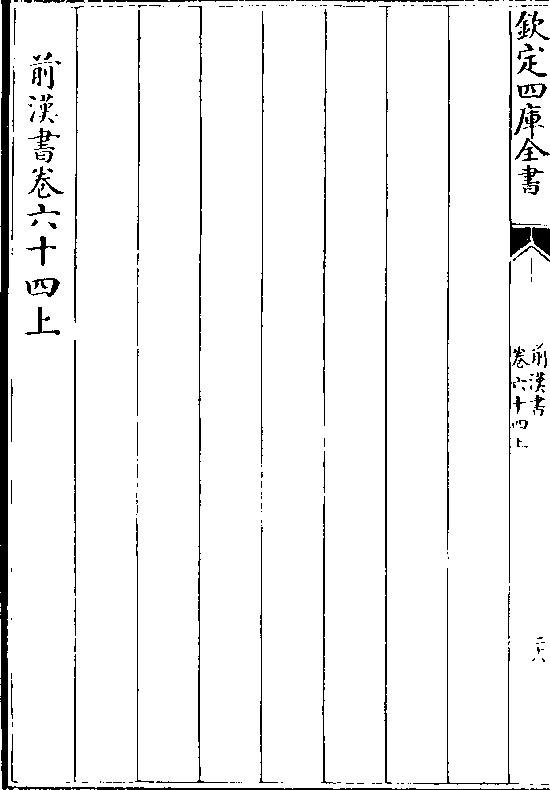 欽定四庫全書
前漢書
卷六十四上
二十八
前漢書卷六十四上